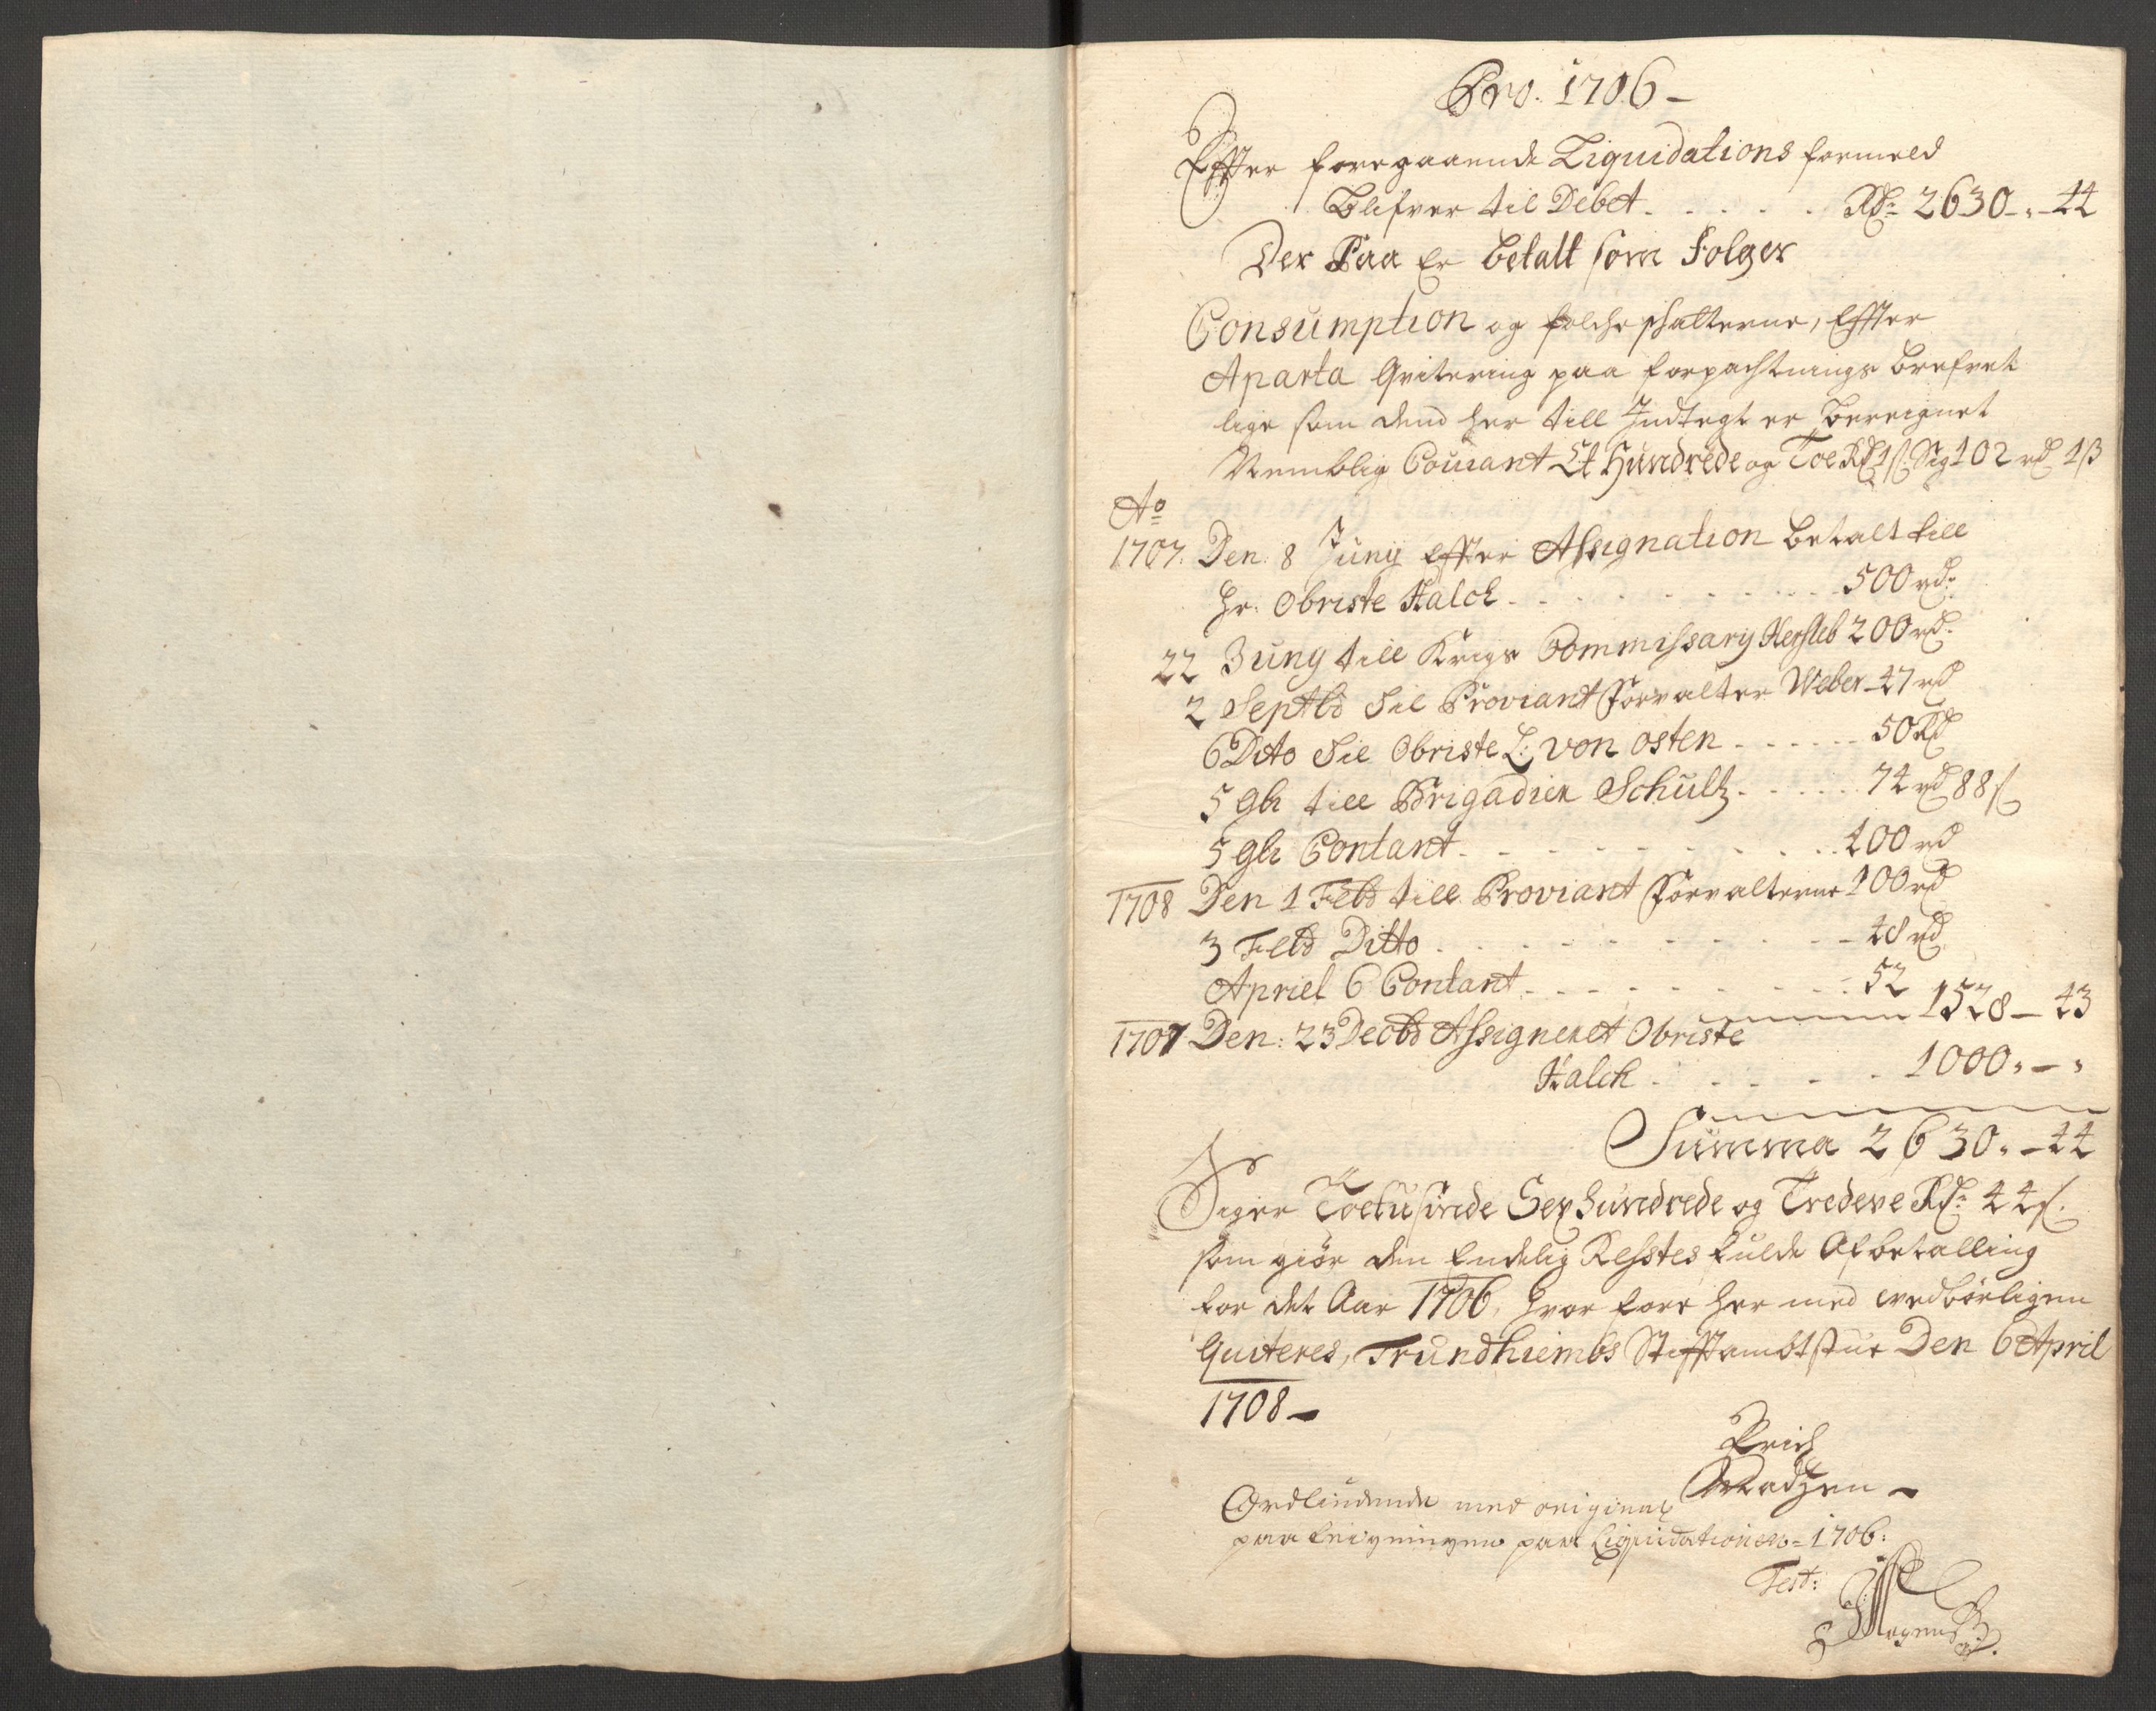 Pro. 1706 -
Effter foregaaende Liquidations formeld
Blifver til Debet . . . . . Rd: 2630 - „ - 44
Der Paa Er betalt som Folger
Consumption og folche schatterne, Effter
Aparta Qvitering paa forpachtnings brefvet
lige som dend her till Indtegt er bereignet
Nemblig Couiant Et Hundrede og Toe Rd 1 s. Sig 102 rd 1 ß
Ao
1707. Den: 8 Juny Effter Assignation betalt till
Hr: Obriste Kalck . . . . . . . 500 rd:
22 Juny till Krigs Commissary Hersleb 200 rd:
2 Septbr Til Proviant Forvalter Weber 47 rd
6 Dito Til Obriste L: von Osten . . . . . 50 Rd
5 9br till Brigadier Schultz . . . . . 74 rd 88 s
5 9br Contant . . . . . . . 400 rd
1708 Den 1 Febr till Proviant Forvalterne 100 rd
3 Febr Ditto . . . . . . . 48 rd
Apriel 6 Contant . . . . . . . 52
1528 - 43
1707 Den: 23 Decbr Assigneret Obriste
Kalck . . . . . 1000 „ - „
Summa 2630 „ - 44
Siger Toetusinde Sex hundrede og Tredeve Rd: 44 s.
som giör den Endelig Resstes fulde Afbetalling
for det Aar 1706, hvor fore her med vedbörligen
Quiteres, Trundhiembs Stifftambtstue Den 6 April
1708 -
Erich
Madzen -
Ordlindende med original
paa teigningen paa Liquidationen = 1706:
Test: